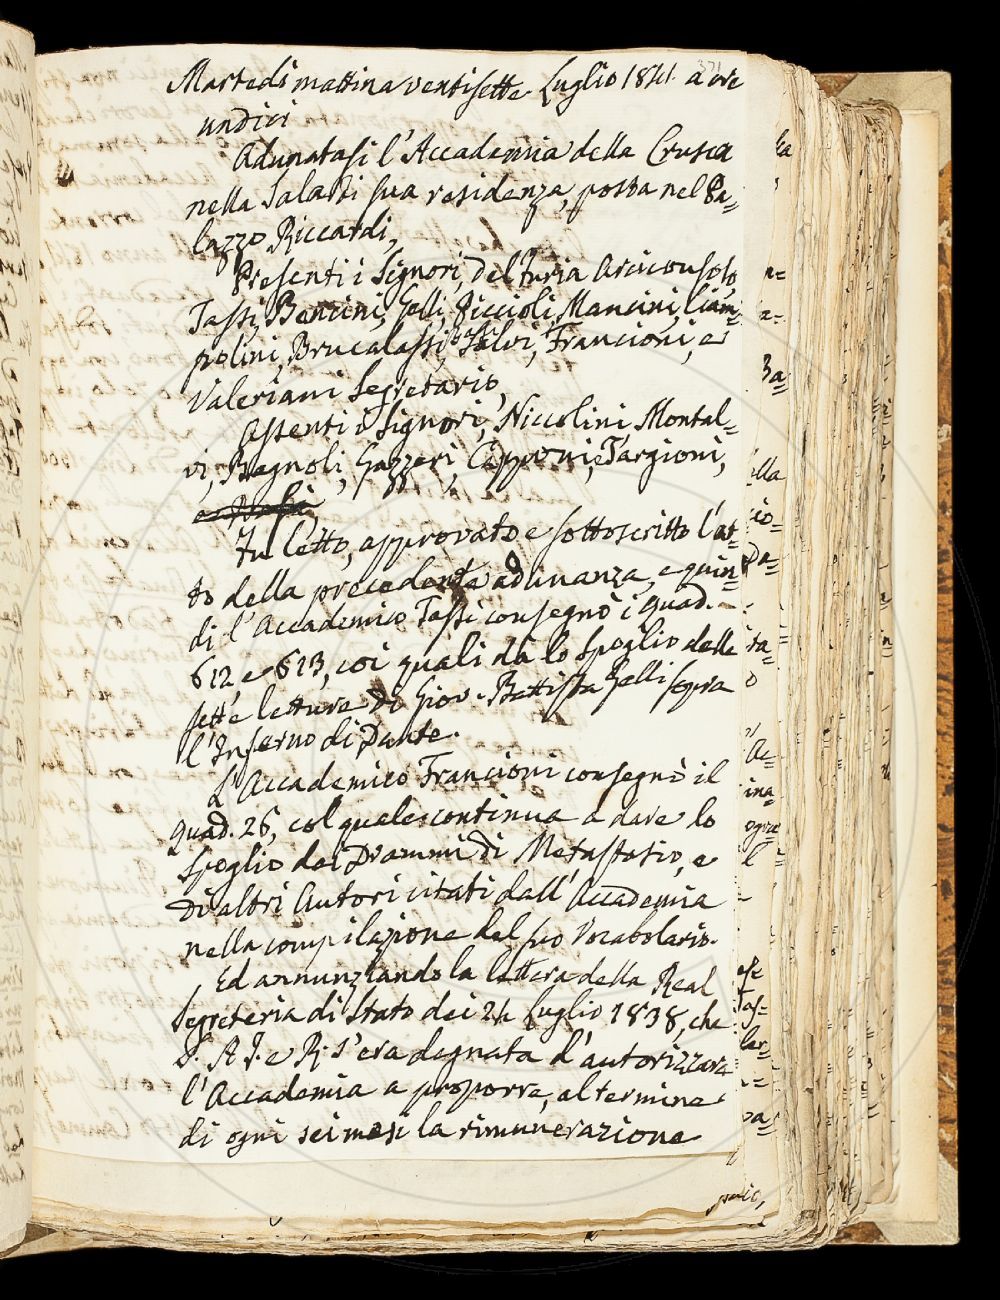 371
Martedì mattina ventisette Luglio 1841. a ore
undici
Adunatasi l'Accademia della Crusca
nella Sala di sua residenza, posta nel Pa=
lazzo Riccardi,
Presenti i Signori, Del Furia Arciconsolo,
Tassi, Bencini, Gelli, Piccioli, Mancini, Ciam=
polini, Brucalassi, Salvi, Francioni, e
Valeriani Segretario,
Assenti i Signori, Niccolini Montal=
vi, Bagnoli, Gazzeri, Capponi, e Targioni,
Fu letto, approvato e sottoscritto l'at=
to della precedente adunanza, e quin=
di l'Accademico Tassi consegnò i Quad.
612, e 613, coi quali dà lo Spoglio delle
sette letture di Giov. Battista Gelli sopra
l'Inferno di Dante.
L'Accademico Francioni consegnò il
Quad. 26, col quale continua a dare lo
Spoglio dei Drammi di Metastasio, e
di altri Autori citati dall'Accademia
nella compilazione del suo Vocabolario.
Ed annunziando la lettera della Real
Segreteria di Stato dei 24 Luglio 1838, che
S. A. I. e R. s'era degnata d'autorizzare
l'Accademia a proporre, al termine
di ogni sei mesi la rimunerazione